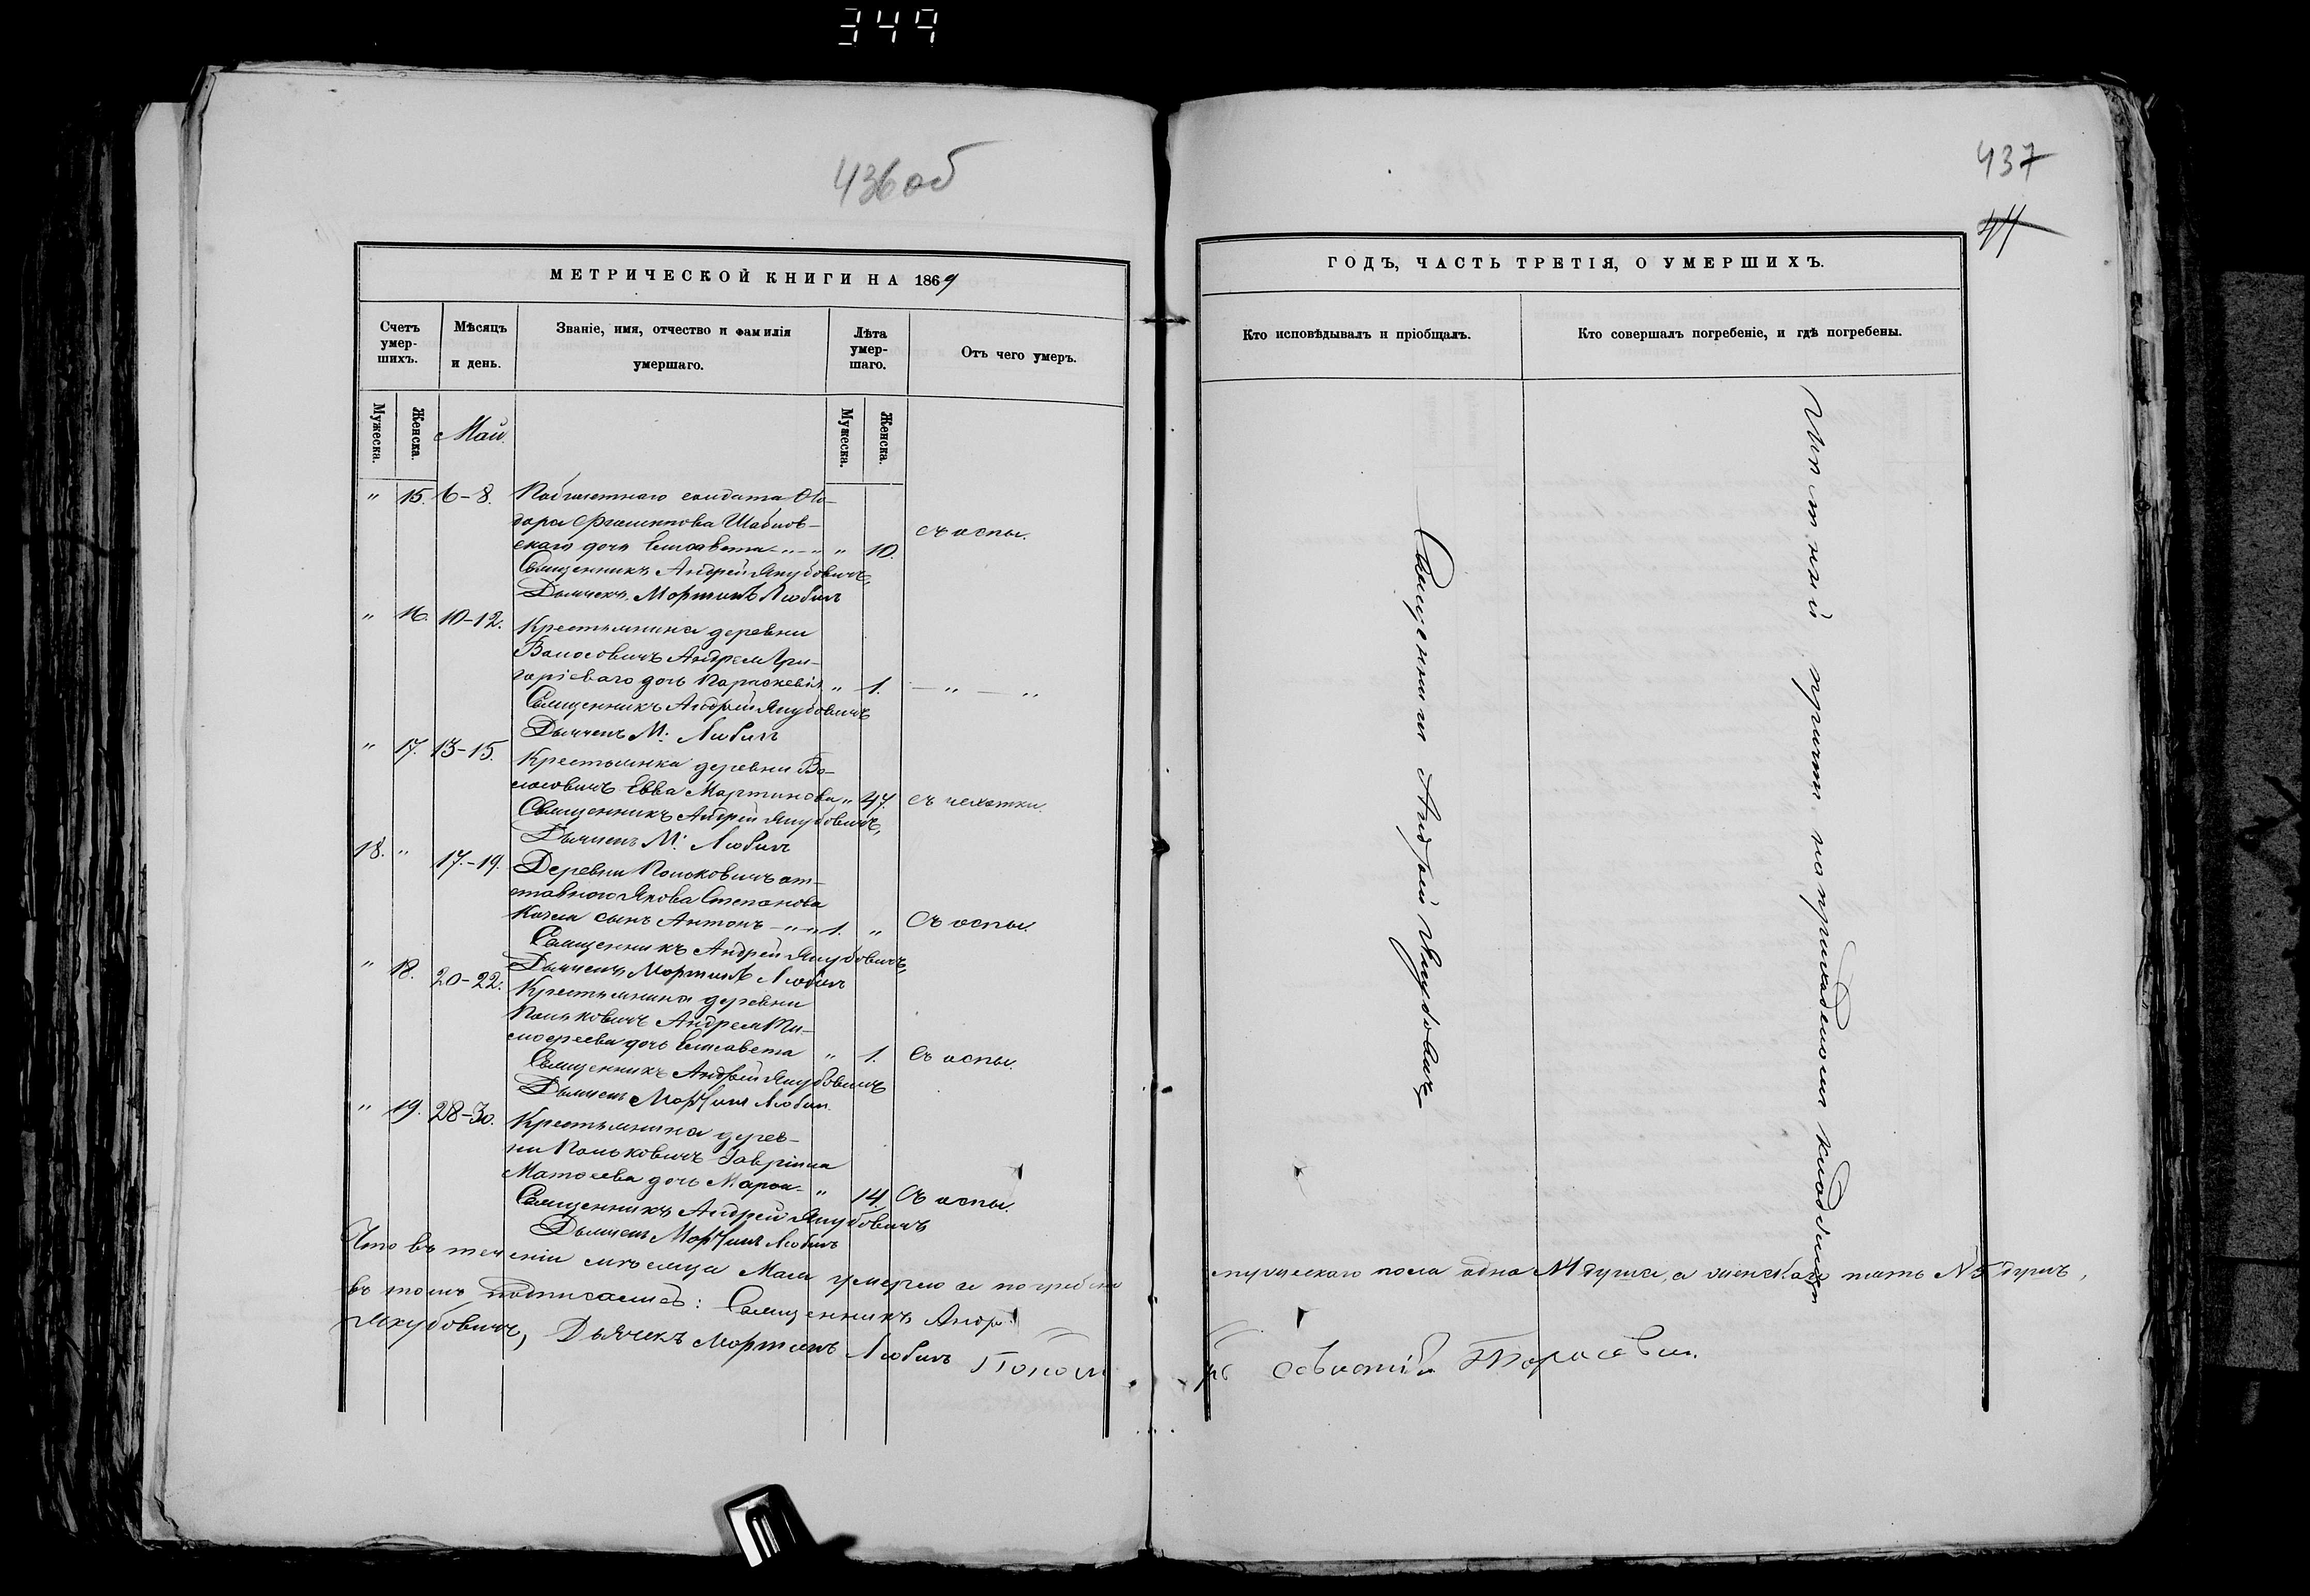 349
436 об
МЕТРИЧЕСКОЙ КНИГИ НА 1869
Счетъ умер-шихъ.
Мѣсяцъ и день.
Званіе, имя, отчество и фамилія умершаго.
Лѣта умер-шаго.
Отъ чего умеръ.
Мужеска.
Женска.
Май.
Мужеска.
Женска.
" 15. 6-8. солдата Ѳео-
дора Шабнов-
скаго дочь Елисавета " " " 10. съ оспы.
Священникъ Андрей Якубовичъ,
Дьячекъ Мартинъ Любичъ
" 16. 10-12. Крестьянина деревни
Волосовичъ Андрея Гри-
горіеваго дочь Параскевія " 1. — " — "
Священникъ Андрей Якубовичъ
Дьячекъ М: Любичъ
" 17. 13-15. Крестьянка деревни Во-
лосовичъ Евва Мартинова " 47. съ чехотки.
Священникъ Андрей Якубовичъ,
Дьячекъ М: Любичъ
18. " 17.-19. Деревни Полюковичъ от-
ставного Якова Степанова
Козла сынъ Антонъ — " " 1. " Съ оспы.
Священникъ Андрей Якубовичъ,
Дьячекъ Мартинъ Любичъ
" 18. 20-22. Крестьянина деревни
Андрея Ти-
моѳеева дочь Елисавета " 1. Съ оспы.
Священникъ Андрей Якубовичъ
Дьячекъ Мартинъ Любич
" 19. 28-30. Крестьянина дерев-
ни Гавріила
Матѳеева дочь Марѳа " 14. Съ оспы.
Священникъ Андрей Якубовичъ
Дьячекъ Мартинъ Любичъ
Что въ теченіи мѣсяца Мая умерло и погребено
въ томъ подписались: Священникъ Андр.
Якубовичъ, Дьячекъ Мартинъ Любичъ Поном
437
44
ГОДЪ, ЧАСТЬ ТРЕТІЯ, О УМЕРШИХЪ.
Кто исповѣдывалъ и пріобщалъ.
Кто совершалъ погребеніе, и гдѣ погребены.
Священникъ Андрей Якубовичъ
причтъ на приходскомъ кладбищѣ
мужескаго пола одна №1 душа, а женскаго пять №5 душъ,
Тарасевич.